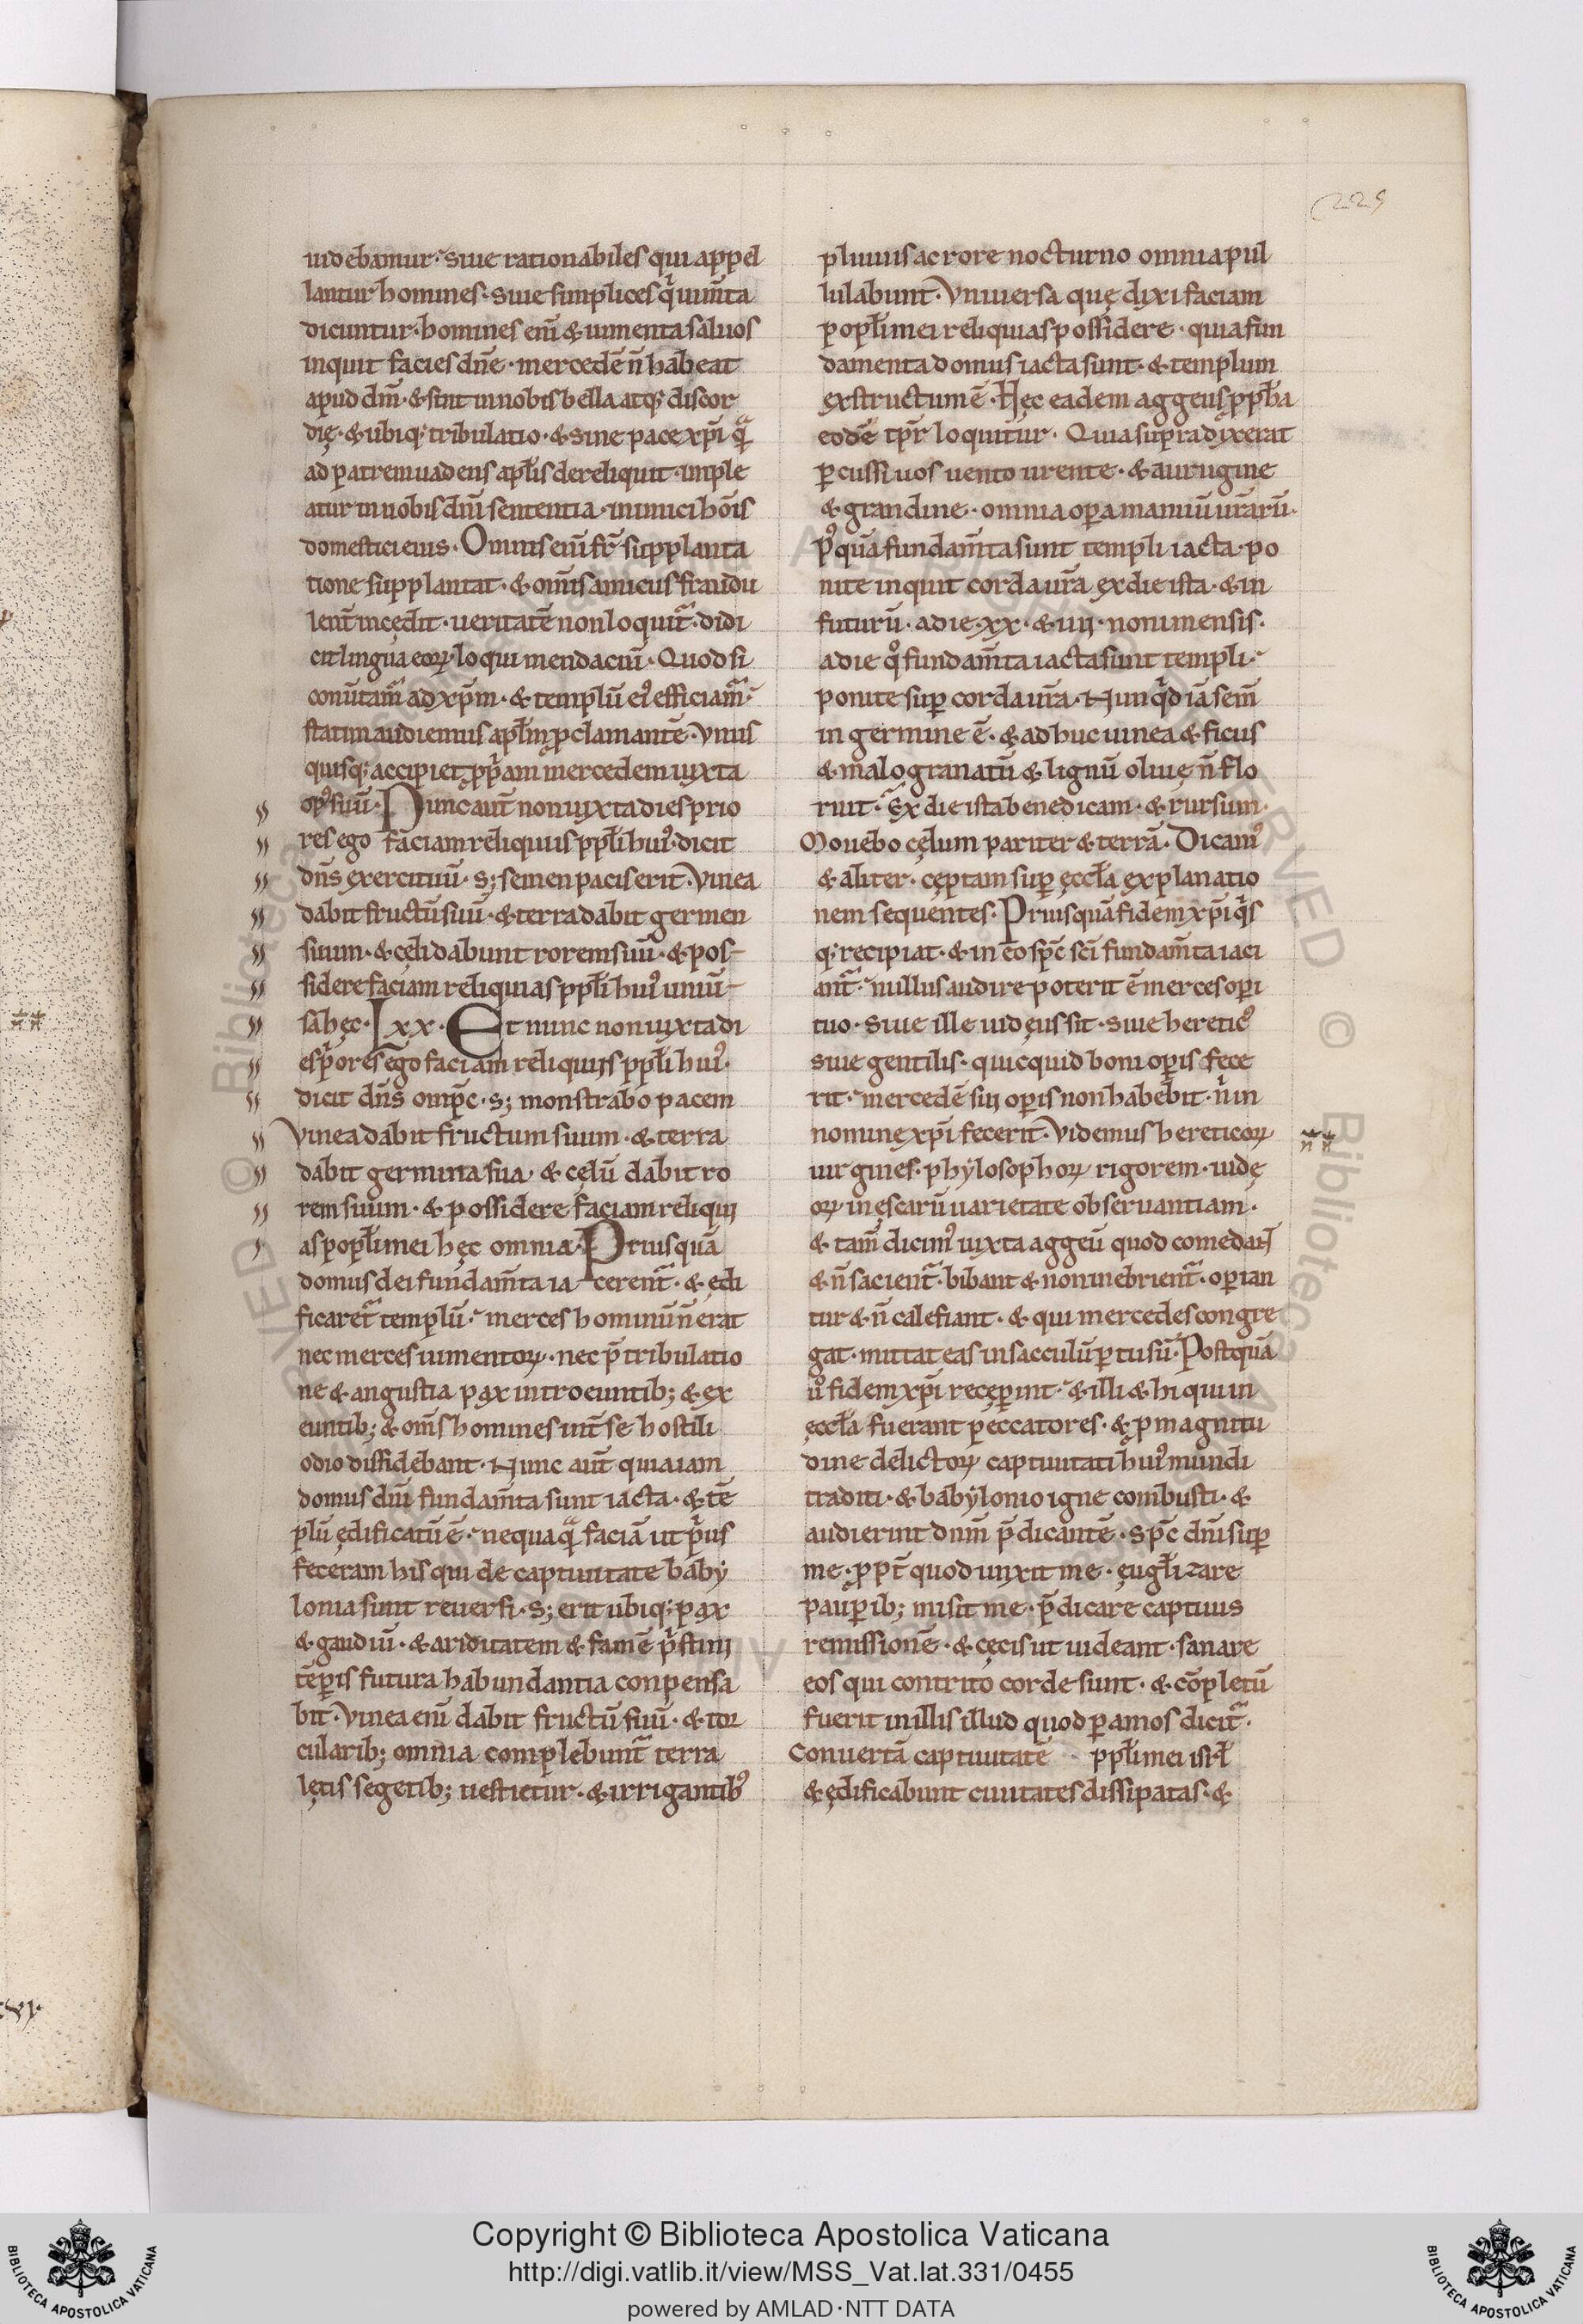 225
uidebamur· siue rationabiles qui appel
lantur homines· siue simplices q̇ ium̄ta
dicuntur· homines eni̅ & iumenta saluos
inquit facies dn̄e· mercedē n̄ habeat
apud dm̄· & sint in nobis bella atq; discor
dię· & ubiq; tribulatio· & sine pace xp̄i q̄
ad patrem uadens apl̄is dereliquit· imple
atur in nobis dn̄i sententia· inimici hōis
domestici eius· Omnis eni̅ fr̄ supplanta
tione supplantat· & om̄is amicus fraudu
lent̄ incędit· ueritatē non loquit᷑· didi
cit lingua eoꝝ loqui mendaciū· Quod si
conūtam᷑ ad xp̄m· & templū ei⁹ efficiam᷑·
statim audiemus apl̄m ꝓclamantē· Vnus
quisq; accipiet ꝓp̄am mercedem iuxta
op⁹ suū· Nunc aut̄ non iuxta dies prio
res ego faciam reliquiis ppl̄i hui⁹· dicit
dn̄s exercituū· s; semen pacis erit· Vinea
dabit fructū suū· & terra dabit germen
suum· & cęli dabunt rorem suū· & pos-
sidere faciam reliquias ppl̄i hui⁹ uniū-
sa hęc· Lxx· Et nunc non iuxta di
es p̍ores ego faciam reliquiis ppl̄i hui⁹·
dicit dn̄s omp̄c· s; monstrabo pacem
Vinea dabit fructum suum· & terra
dabit germina sua· & cęlū dabit ro
rem suum· & possidere faciam reliqui
as popl̄i mei hęc omnia· Priusquā
domus dei fundam̄ta iacerent᷑· & ędi
ficaret᷑ templū· merces hominū n̄ erat
nec merces iumentoꝝ· nec p̄ tribulatio
ne & angustia pax introeuntib; & ex
euntib; & om̄s homines int̄ se hostili
odio dissidebant· Nunc aut̄ quia iam
domus dn̄i fundam̄ta sunt iacta· & tē
plū ędificatū ē· nequaq̄ faciā ut p̍us
feceram his qui de captiuitate baby
lonia sunt reuersi· s; erit ubiq; pax
& gaudiū· & ariditatem & famē p̍stini
tēꝑis futura habundantia conpensa
bit· Vinea eni̅ dabit fructū suū· & tor
cularib; omnia complebunt᷑ terra
lętis segetib; uestietur· & irrigantib⁹
pluuiis ac rore nocturno omnia pul
lulabunt· Vniuersa quę dixi faciam
popl̄i mei reliquias possidere· quia fun
damenta domus iacta sunt· & templum
exstructum ē· Hęc eadem aggeus pph̄a
eodē tp̄r loquitur· Quia supra dixerat
ꝑcussi uos uento urente· & aurugine
& grandine· omnia oꝑa manuū ur̄arū·
p⁹quā fundam̄ta sunt templi iacta· po
nite inquit corda ur̄a ex die ista· & in
futurū· a die·xx·& iiij·noni mensis·
a die q° fundam̄ta iacta sunt templi·
ponite suꝑ corda ur̄a· Nunq̍d iā sem̄
in germine ē· & adhuc uinea & ficus
& malogranatū & lignū oliuę n̄ flo
ruit· Ex die ista benedicam· & rursum·
Mouebo cęlum pariter & terrā· Dicam⁹
& aliter· cęptam suꝑ ęccl̄a explanatio
nem sequentes· Priusquā fidem xp̄i q̍s
q; recipiat· & in eo sp̄c sc̄i fundam̄ta iaci
ant᷑· nullus audire poterit ē merces oꝑi
tuo· siue ille iudęus sit· siue heretic⁹
siue gentilis· quicquid boni oꝑis fece
rit· mercedē sui oꝑis non habebit· n̍ in
nomine xp̄i fecerit· Videmus hereticoꝝ
uirgines· phylosophoꝝ rigorem· iudę
oꝝ in ęscarū uarietate obseruantiam·
& tam̄ dicim⁹ iuxta aggeū quod comedant
& n̄ sacient᷑· bibant & non inebrient᷑· oꝑian
tur & n̄ calefiant· & qui mercedes congre
gat· mittat eas in sacculū ꝑtusū· Postquā
u° fidem xp̄i recęꝑint· & illi & hi qui in
ęccl̄a fuerant peccatores· & ꝑ magnitu
dine delictoꝝ captiuitati hui⁹ mundi
traditi· & babylonio igne combusti· &
audierint dn̄m p̄dicantē· sp̄c dn̄i suꝑ
me· ꝓpt̄ quod unxit me· ęugl̄izare
pauꝑib; misit me· p̄dicare captiuis
remissionē· & cęcis ut uideant· sanare
eos qui contrito corde sunt· & cōpletū
fuerit in illis illud quod ꝑ amos dicit᷑·
Conuertā captiuitatē ppl̄i mei isr̄l
& ędificabunt ciuitates dissipatas· &
Copyright © Biblioteca Apostolica Vaticana
http://digi.vatlib.it/view/MSS_Vat.lat.331/0455
powered by AMLAD·NTT DATA
BIBLIOTECA APOSTOLICA VATICANA
BIBLIOTECA APOSTOLICA VATICANA